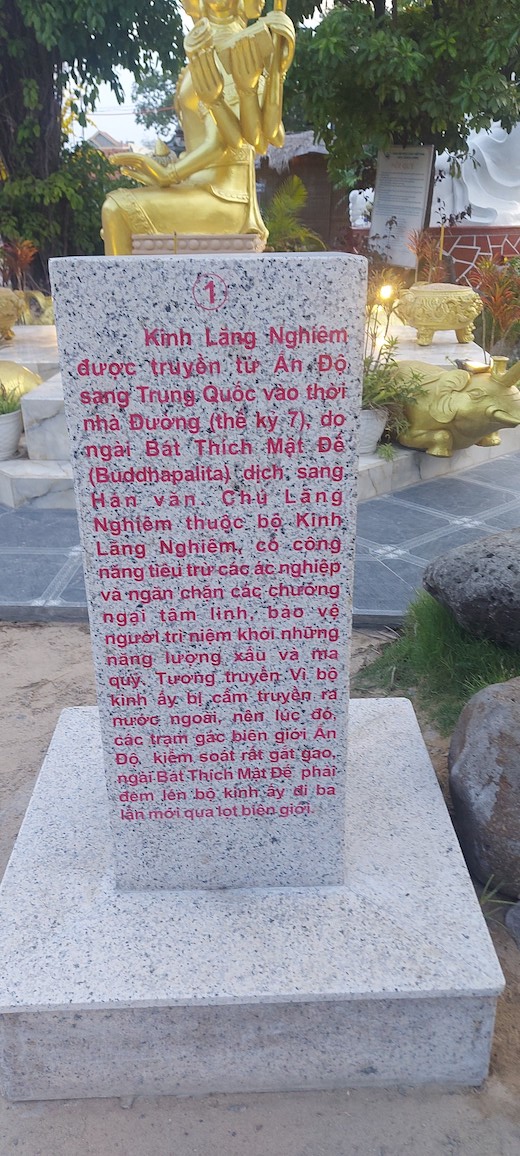 1
Kinh Lăng Nghiêm
được truyền từ Ấn Độ
sang Trung Quốc vào thời
nhà Đường (thế kỷ 7), do
ngài Bát Thích Mật Đế
(Buddhapalita) dịch sang
Hán văn. Chú Lăng
Nghiêm thuộc bộ Kinh
Lăng Nghiêm, có công
năng tiêu trừ các ác nghiệp
và ngăn chặn các chướng
ngại tâm linh, bảo vệ
người trì niệm khỏi những
năng lượng xấu và ma
quỷ. Tương truyền Vì bộ
kinh ấy bị cấm truyền ra
nước ngoài, nên lúc đó,
các trạm gác biên giới Ấn
Độ, kiểm soát rất gắt gao,
ngài Bát Thích Mật Đế phải
đem lén bộ kinh ấy đi ba
lần mới qua lọt biên giới.